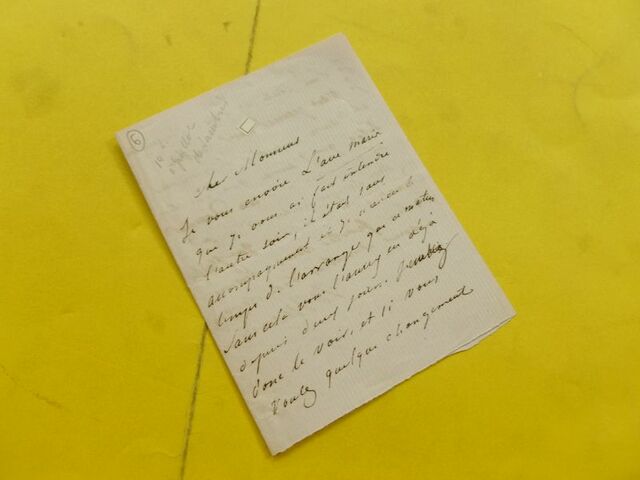 6
Cher Monsieur
Je vous envoie L'ave Maria
que je vous ai fait entendre
l'autre soir, il était sans
accompagnement et je n'ai eu le
temps de l'arranger que ce matin
Sans cela vous l'auriez eu déjà
depuis deux jours. Veuillez
donc le voir, et si vous
voulez quelque changement